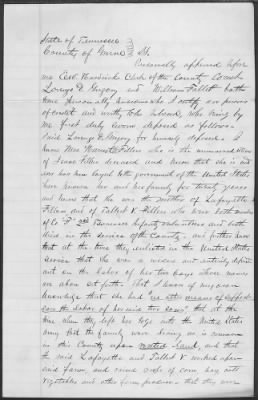 State of Tennessee
County of Greene } Ss
Personally appeared before
me Clerk of the County Court
George D. Gregory and William Fillett both
to me personally known who I certify are persons
of credit and worthy to be believed, who being by
me first duly sworn deposed as follows
Said George D. Gregory for himself deposed. I
know Mrs. Fillers who is the unmarried widow
of Isaac Fillers deceased and know that she is and
has been loyal to the government of the United States
have known her and her family for twenty years
and know that she was the mother of Lafayette
Fillers and of Talbot V. Fillers who were both
of Co F 2nd Tennessee Infantry Volunteers and both
died in the service of the Country and further know
that at the time they enlisted in the United States
service that she was a means and entirely depend
ant on the labor of her two boys whose names
are above set forth. That I know of my own
knowledge that she had "no other means of support
save the labor of her said two sons" that at the
time when they left her to go into the United States
army that the family were living as is common
in this County upon rented land, and that
the said Lafayette and Talbot V. worked upon
said farm, and raised crops of corn hay oats
vegetables and other farm produce that they were